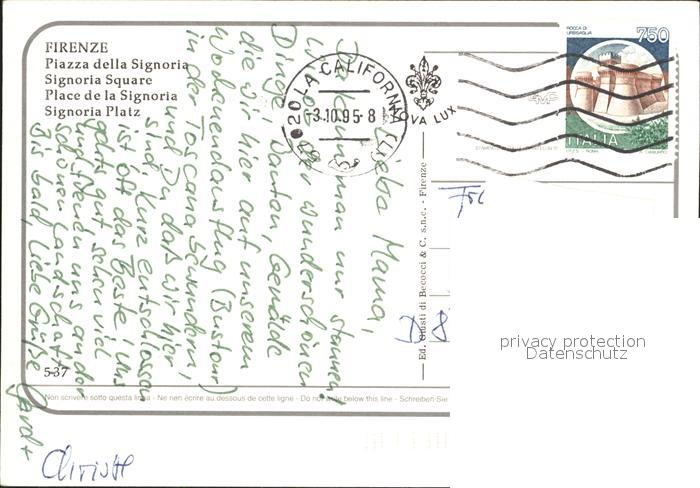 FIRENZE
Piazza della Signoria
Signoria Square
Place de la Signoria
Signoria Platz
Liebe Mama,
Da kann man nur staunen!
Wegen der wunderschönen
Dinge, Bauten, Gemälde
die wir hier auf unserem
Wochenendausflug (Bustour)
in der Toscana bewundern,
und daß wir hier
sind. Kurz entschlossen
ist oft das Beste! Uns
geht's gut, sehen viel
und freuen uns an der
schönen Landschaft.
Bis bald, liebe Grüße
Gerd +
Christl
20 LA CALIFORN
-3.10.95-8
ROCCA DI
URBISAGLIA
750
ITALIA
I.P.Z.S. - ROMA
Ed. Giusti di Becocci & C. s.n.c. - Firenze
D 8
537
Non scrivere sotto questa linea - Ne rien écrire au dessous de cette ligne - Do not write below this line - Schreiben Sie
privacy protection
Datenschutz